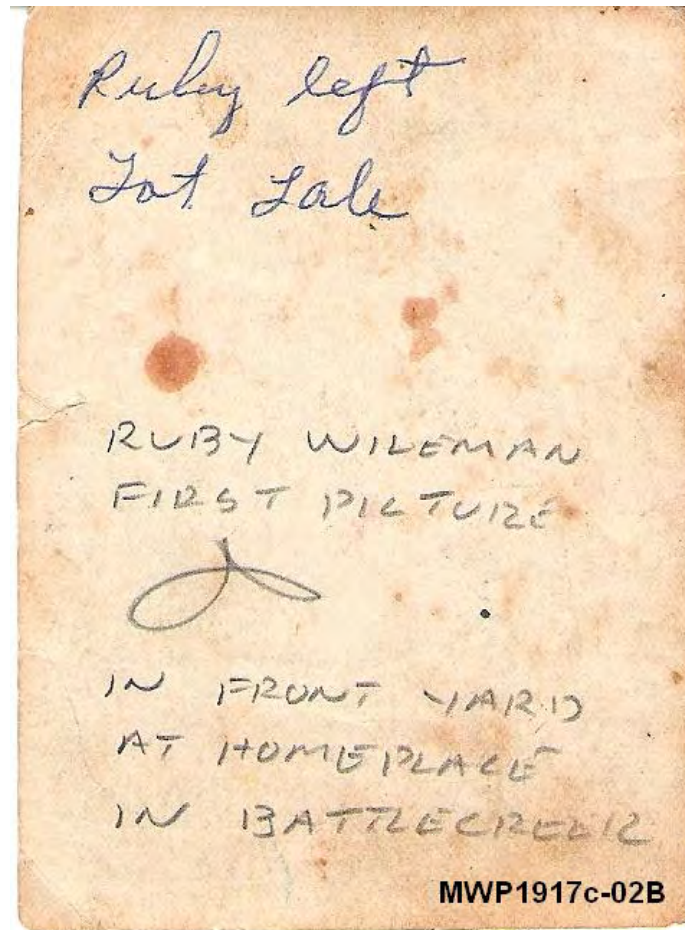 Ruby left
RUBY WILEMAN
FIRST PICTURE
IN FRONT YARD
AT HOMEPLACE
IN BATTLECREEK
MWP1917c-02B